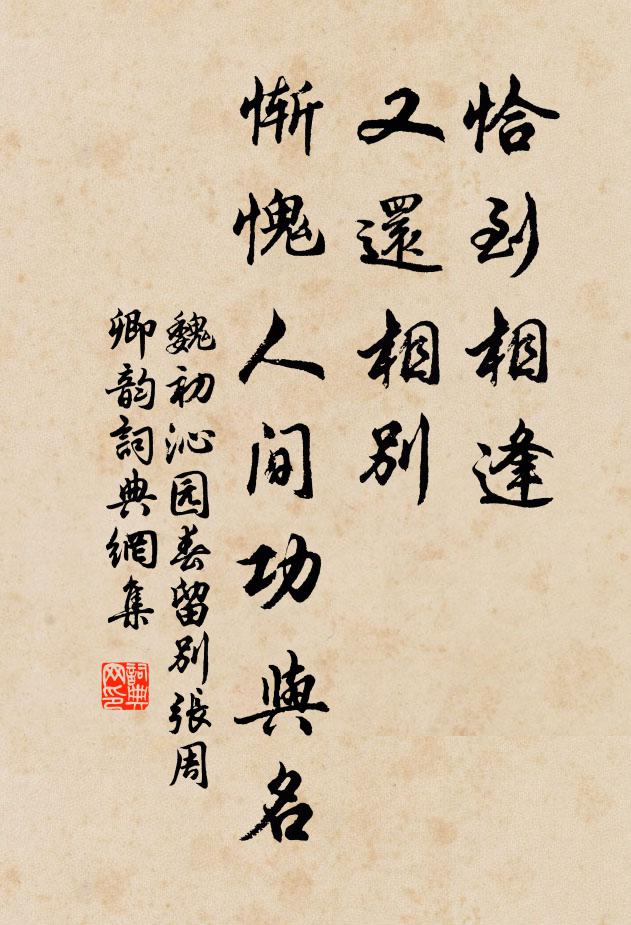 恰到相逢
又還相別
慚愧人间功與名
魏初沁园春留别張周
卿韵詞典網集
詞典
网印